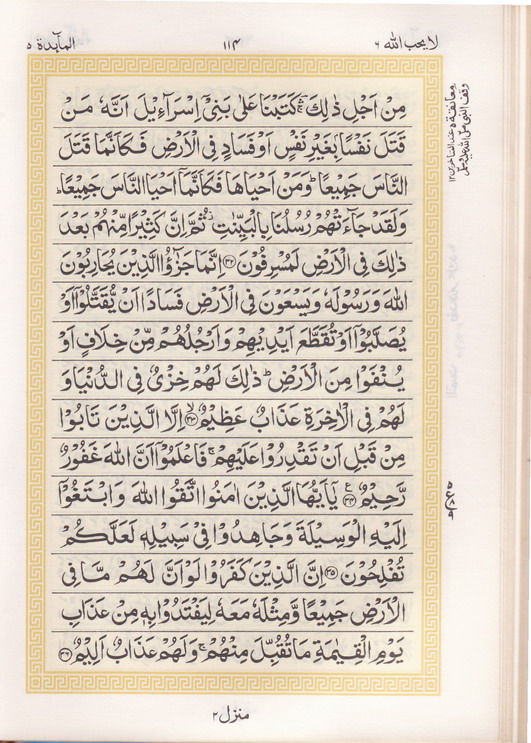 لا يحب الله ٦
١١٤
المآئدة ٥
مِنْ اَجْلِ ذٰلِكَ ۛۚ كَتَبْنَا عَلٰى بَنِيْٓ اِسْرَآءِيْلَ اَنَّهٗ مَنْ
قَتَلَ نَفْسًۢا بِغَيْرِ نَفْسٍ اَوْ فَسَادٍ فِى الْاَرْضِ فَكَاَنَّمَا قَتَلَ
النَّاسَ جَمِيْعًا ؕ وَمَنْ اَحْيَاهَا فَكَاَنَّمَاۤ اَحْيَا النَّاسَ جَمِيْعًا ؕ
وَلَقَدْ جَآءَتْهُمْ رُسُلُنَا بِالْبَيِّنٰتِ ثُمَّ اِنَّ كَثِيْرًا مِّنْهُمْ بَعْدَ
ذٰلِكَ فِى الْاَرْضِ لَمُسْرِفُوْنَ ۝٣٢ اِنَّمَا جَزٰٓؤُا الَّذِيْنَ يُحَارِبُوْنَ
اللهَ وَرَسُوْلَهٗ وَيَسْعَوْنَ فِى الْاَرْضِ فَسَادًا اَنْ يُّقَتَّلُوْٓا اَوْ
يُصَلَّبُوْٓا اَوْ تُقَطَّعَ اَيْدِيْهِمْ وَاَرْجُلُهُمْ مِّنْ خِلَافٍ اَوْ
يُنْفَوْا مِنَ الْاَرْضِ ؕ ذٰلِكَ لَهُمْ خِزْىٌ فِى الدُّنْيَا وَ
لَهُمْ فِى الْاٰخِرَةِ عَذَابٌ عَظِيْمٌ ۝٣٣ اِلَّا الَّذِيْنَ تَابُوْا
مِنْ قَبْلِ اَنْ تَقْدِرُوْا عَلَيْهِمْ ۚ فَاعْلَمُوْٓا اَنَّ اللهَ غَفُوْرٌ
رَّحِيْمٌ ۝٣٤ يٰٓاَيُّهَا الَّذِيْنَ اٰمَنُوا اتَّقُوا اللهَ وَابْتَغُوْٓا
اِلَيْهِ الْوَسِيْلَةَ وَجَاهِدُوْا فِيْ سَبِيْلِهٖ لَعَلَّكُمْ
تُفْلِحُوْنَ ۝٣٥ اِنَّ الَّذِيْنَ كَفَرُوْا لَوْ اَنَّ لَهُمْ مَّا فِى
الْاَرْضِ جَمِيْعًا وَّمِثْلَهٗ مَعَهٗ لِيَفْتَدُوْا بِهٖ مِنْ عَذَابِ
يَوْمِ الْقِيٰمَةِ مَا تُقُبِّلَ مِنْهُمْ ۚ وَلَهُمْ عَذَابٌ اَلِيْمٌ ۝٣٦
منزل ٢